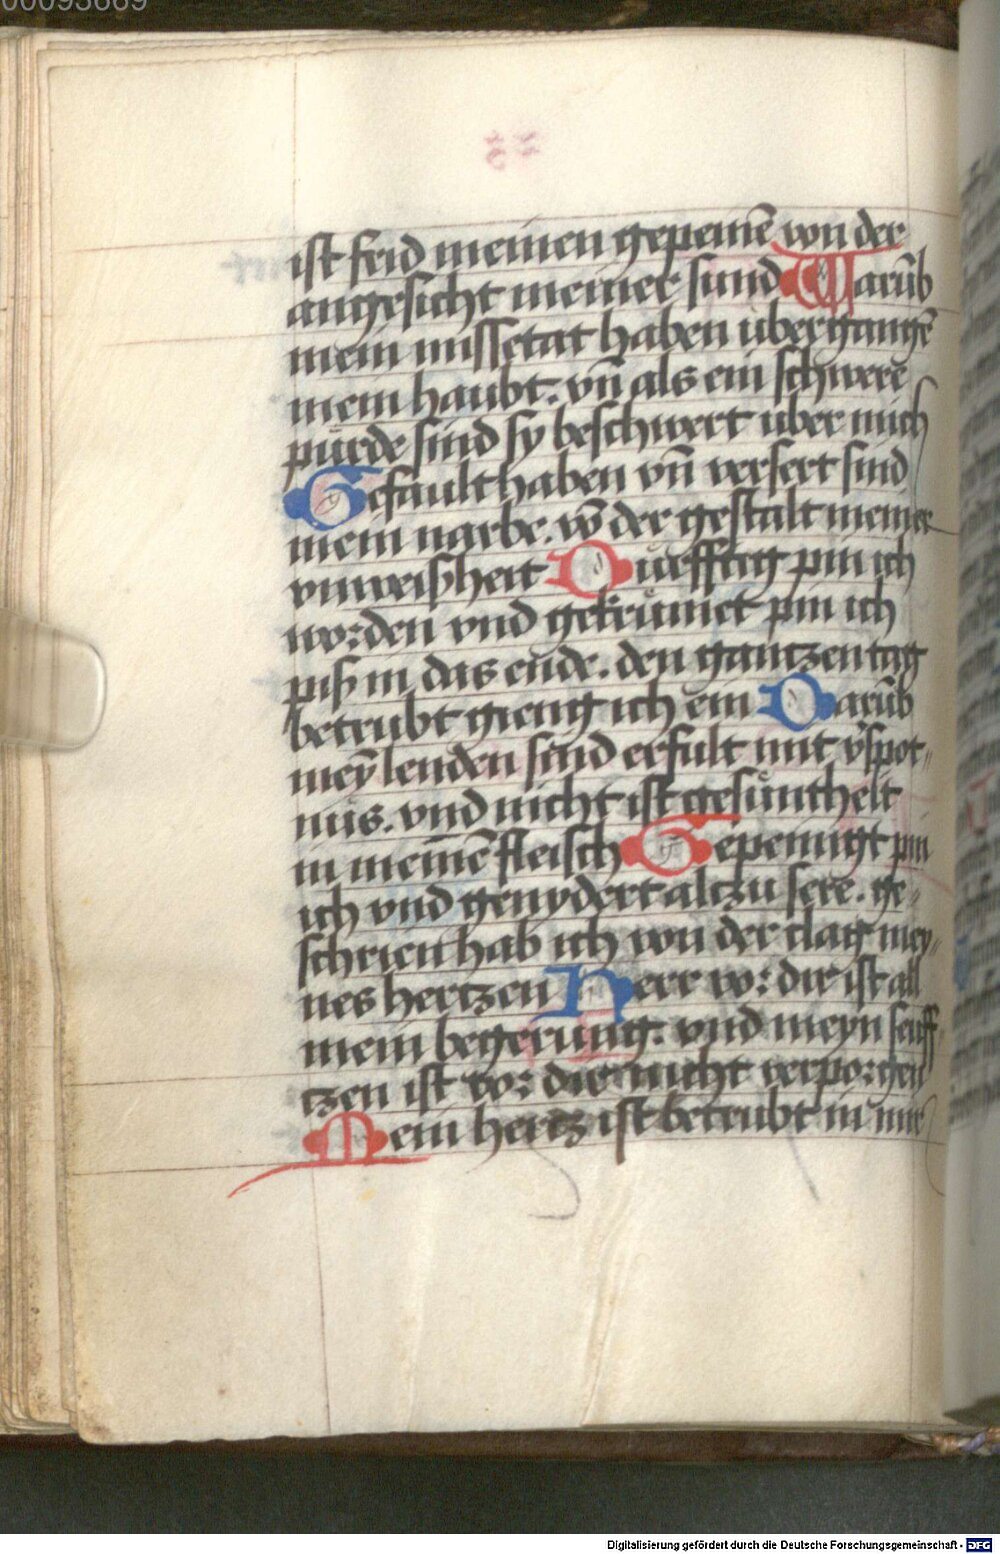 00093669
ist frid meinen gepeinē von der
angesicht meiner sund Warūb
mein missetat haben ubergangē
mein haubt. vn̄ als ein schwere
pürde sind sy beschwert uber mich
Gefault haben vn̄ versert sind
mein narbe. vō der gestalt meiner
vnweisheit Duefftig pin ich
worden vnd gekrümet pin ich
piß in das ende. den gantzen tag
betrubt gieng ich ein Darūb
meȳ lenden sind erfult mit v̄spot-
nus. vnd nicht ist gesuntheit
in meinē fleisch Gepeinigt pin
ich vnd genydert altzu sere. ge-
schrien hab ich von der clag mey-
nes hertzen Herr vor dir ist all
mein begerung. vnd meyn seuff
tzen ist vor dir nicht verporgen
Mein hertz ist betrubt in mir
Digitalisierung gefördert durch die Deutsche Forschungsgemeinschaft - DFG